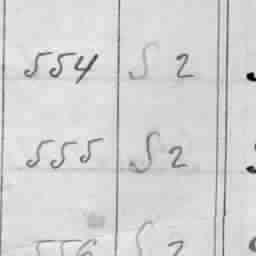 554 S 2
555 S 2
556 S 2